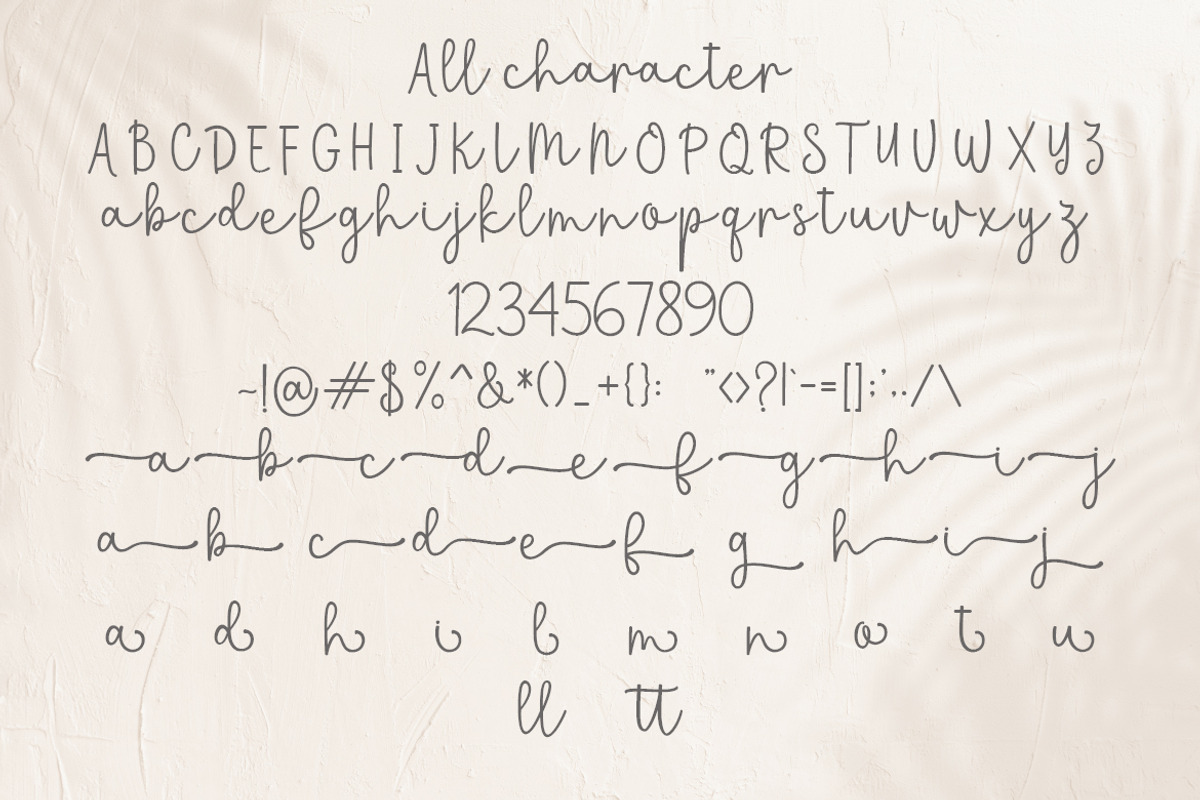 All character
A B C D E F G H I J K L M N O P Q R S T U V W X Y Z
a b c d e f g h i j k l m n o p q r s t u v w x y z
1234567890
~!@#$%^&*()_+{}: "<>?|`-=[];',./\
a b c d e f g h i j
a b c d e f g h i j
a d h i l m n o t u
ll tt